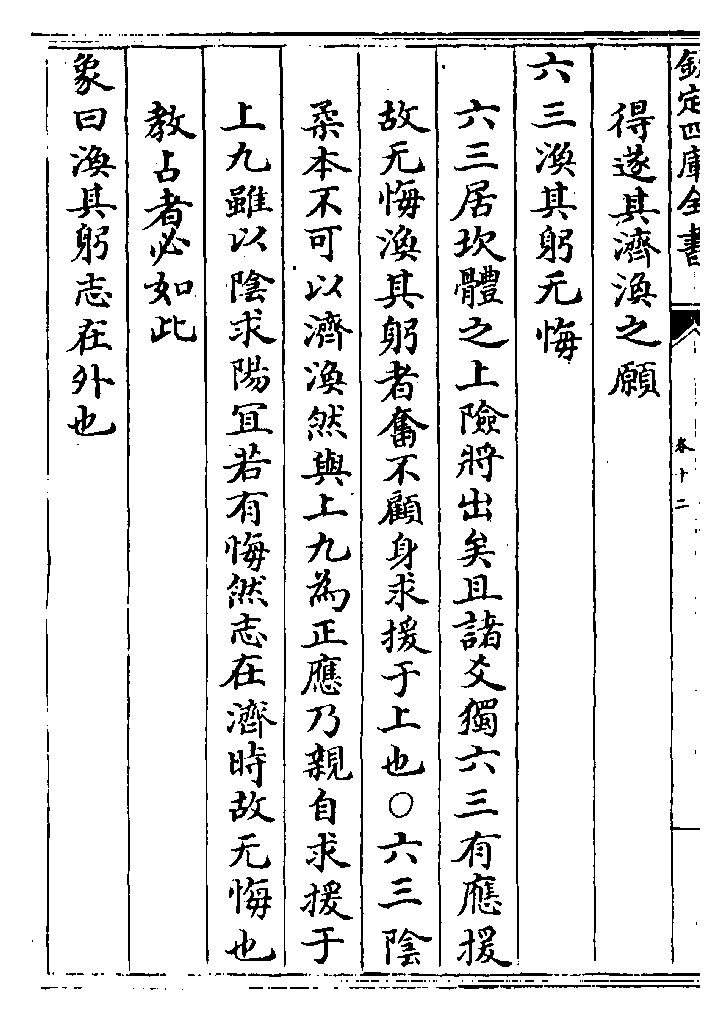 欽定四庫全書
卷十二
得遂其濟渙之願
六三渙其躬无悔
六三居坎體之上險將出矣且諸爻獨六三有應援
故无悔渙其躬者奮不顧身求援于上也○六三陰
柔本不可以濟渙然與上九為正應乃親自求援于
上九雖以陰求陽冝若有悔然志在濟時故无悔也
教占者必如此
象曰渙其躬志在外也